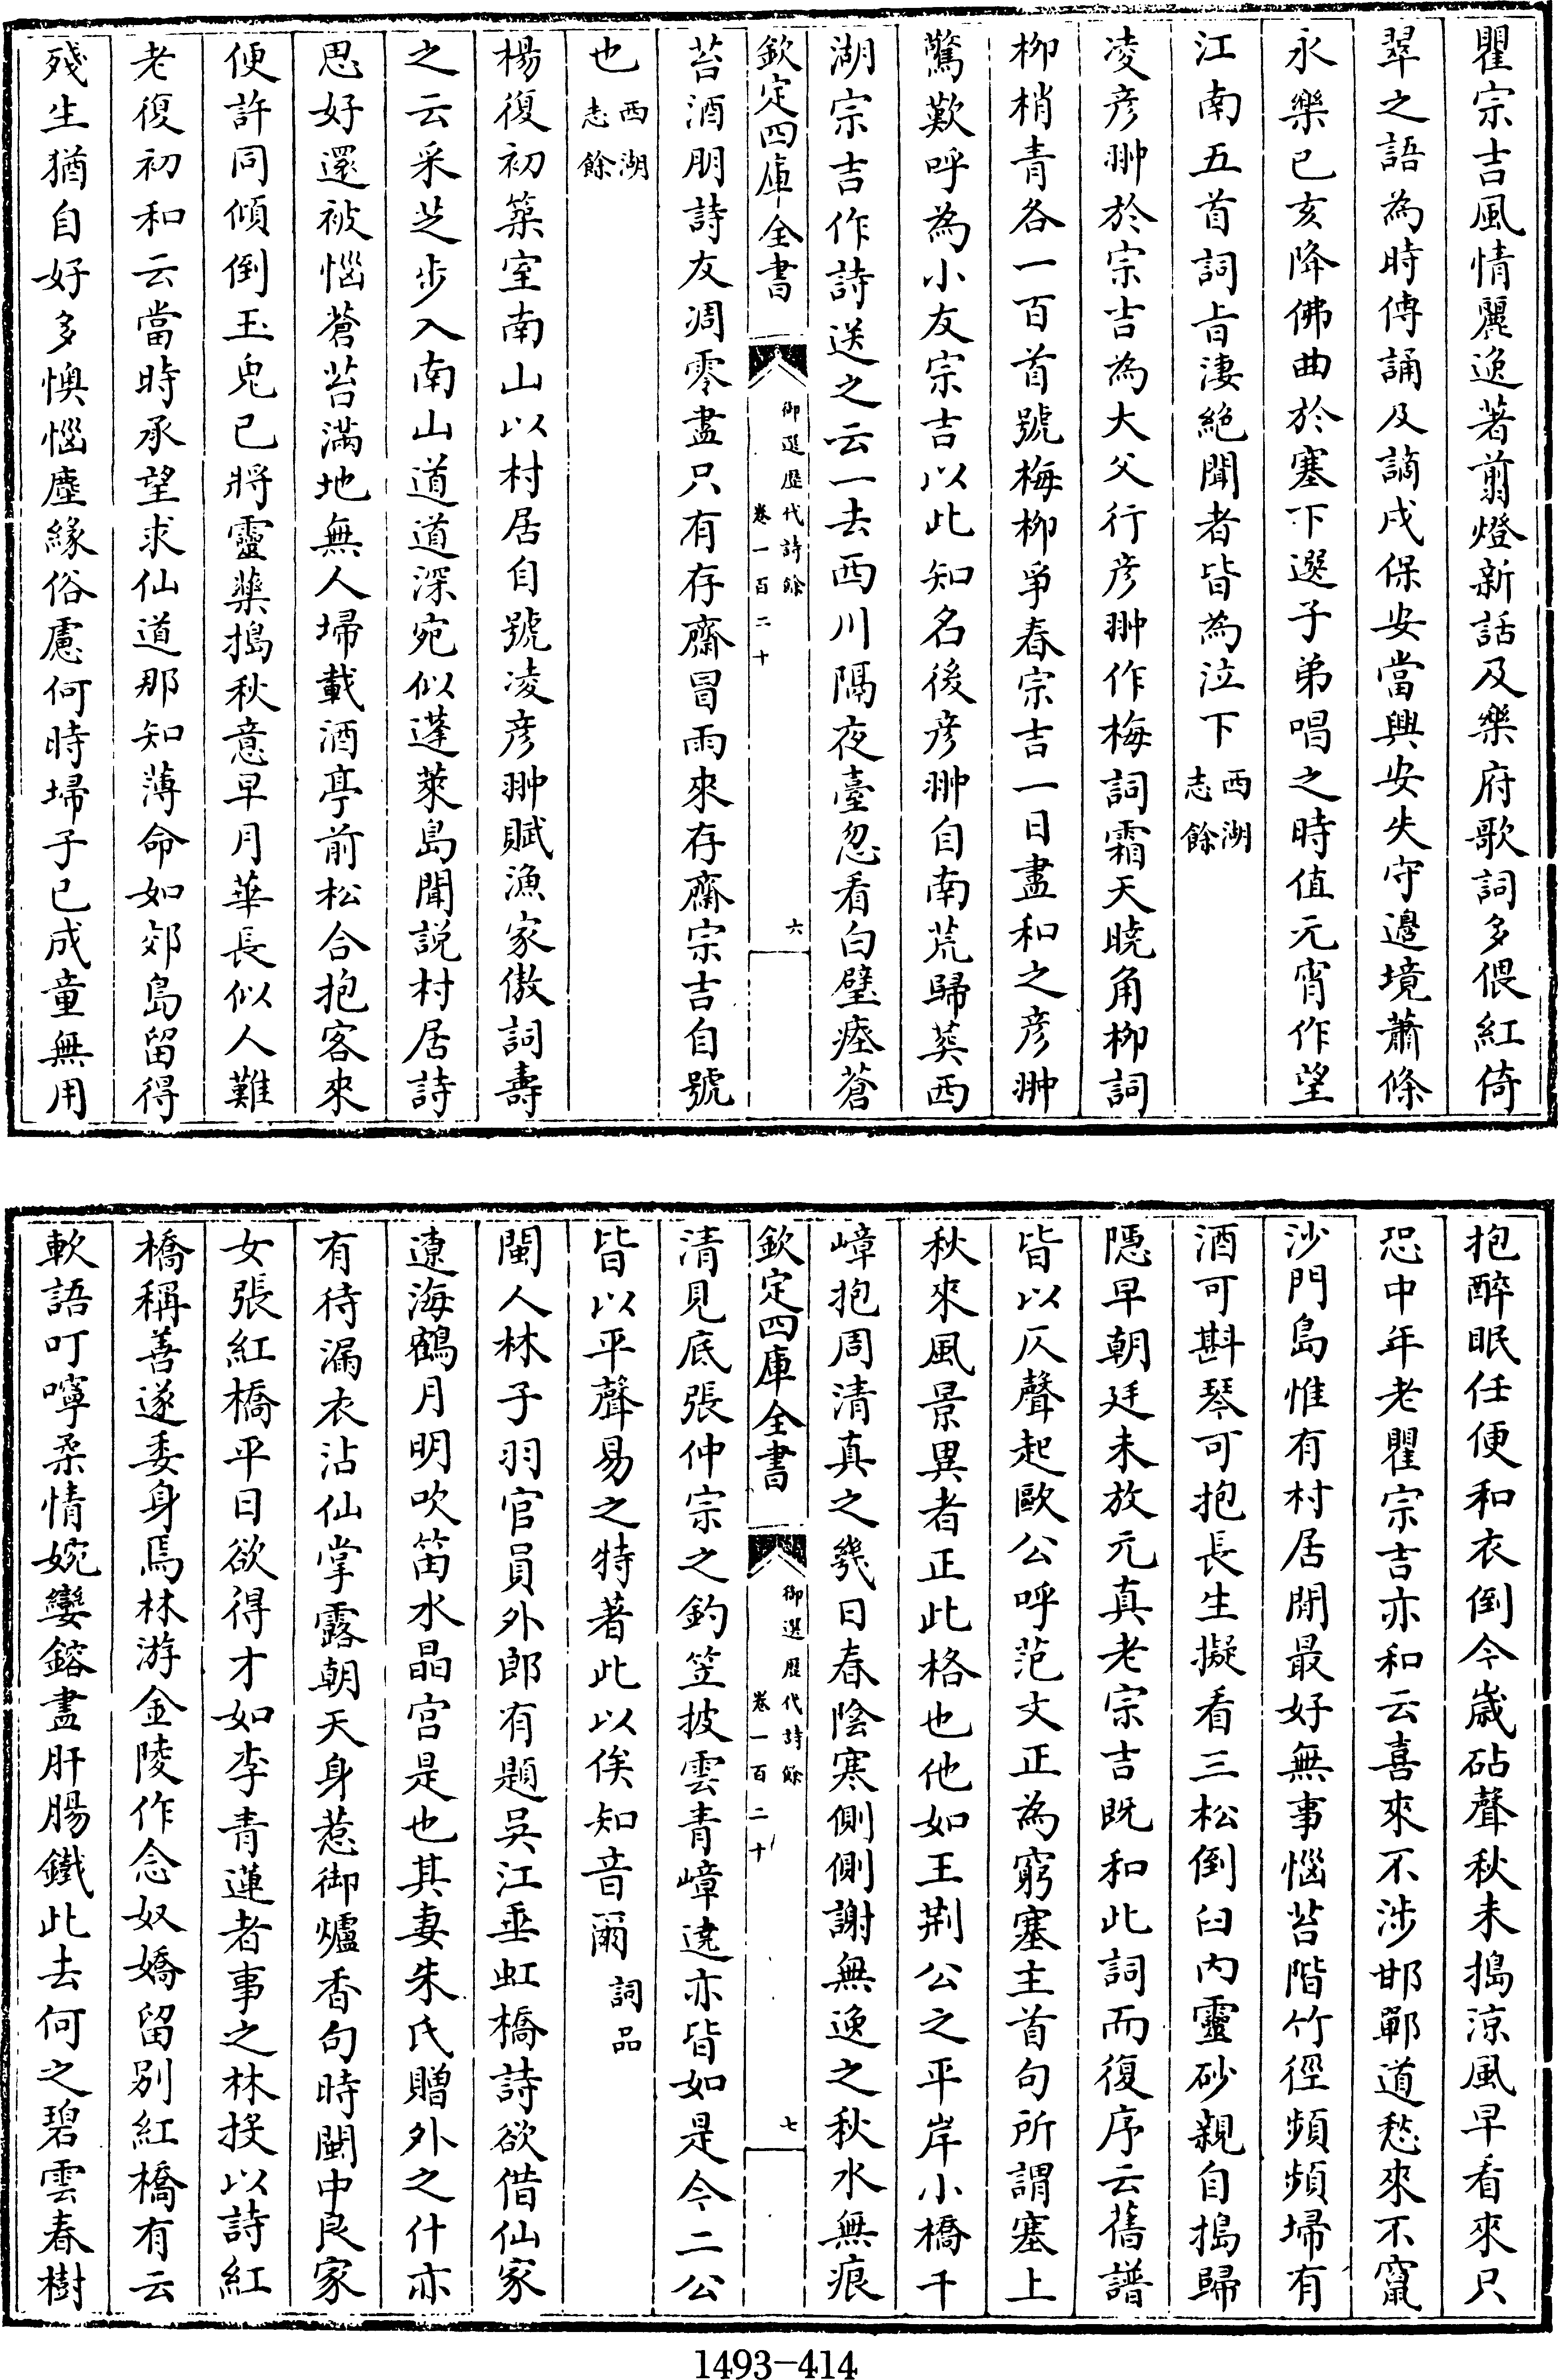 瞿宗吉風情麗逸著翦燈新話及樂府歌詞多偎紅倚
翠之語為時傳誦及謫戍保安當興安失守邊境蕭條
永樂己亥降佛曲於塞下選子弟唱之時值元宵作望
江南五首詞旨淒絶聞者皆為泣下西湖志餘
凌彦翀於宗吉為大父行彦翀作梅詞霜天曉角柳詞
柳梢青各一百首號梅柳爭春宗吉一日盡和之彦翀
驚歎呼為小友宗吉以此知名後彦翀自南荒歸葬西
湖宗吉作詩送之云一去西川隔夜臺忽看白璧瘞蒼
欽定四庫全書
御選歷代詩餘
卷一百二十
六
苔酒朋詩友凋零盡只有存齋冒雨來存齋宗吉自號
也西湖志餘
楊復初築室南山以村居自號凌彦翀賦漁家傲詞壽
之云采芝步入南山道道深宛似蓬萊島聞説村居詩
思好還被惱蒼苔滿地無人埽載酒亭前松合抱客來
便許同傾倒玉兎已將靈藥搗秋意早月華長似人難
老復初和云當時承望求仙道那知薄命如郊島留得
殘生猶自好多懊惱塵緣俗慮何時埽子已成童無用
抱醉眠任便和衣倒今歲砧聲秋未搗涼風早看來只
恐中年老瞿宗吉亦和云喜來不涉邯鄲道愁來不竄
沙門島惟有村居閒最好無事惱苔階竹徑頻頻埽有
酒可斟琴可抱長生擬看三松倒臼内靈砂親自搗歸
隱早朝廷未放元真老宗吉既和此詞而復序云舊譜
皆以仄聲起歐公呼范文正為窮塞主首句所謂塞上
秋來風景異者正此格也他如王荆公之平岸小橋千
嶂抱周清真之幾日春陰寒側側謝無逸之秋水無痕
欽定四庫全書
御選歷代詩餘
卷一百二十
七
清見底張仲宗之釣笠披雲青嶂遶亦皆如是今二公
皆以平聲易之特著此以俟知音爾詞品
閩人林子羽官員外郎有題吳江垂虹橋詩欲借仙家
遼海鶴月明吹笛水晶宫是也其妻朱氏贈外之什亦
有待漏衣沾仙掌露朝天身惹御爐香句時閩中良家
女張紅橋平日欲得才如李青蓮者事之林投以詩紅
橋稱善遂委身焉林游金陵作念奴嬌留别紅橋有云
軟語叮嚀柔情婉孌鎔盡肝腸鐵此去何之碧雲春樹
1493-414